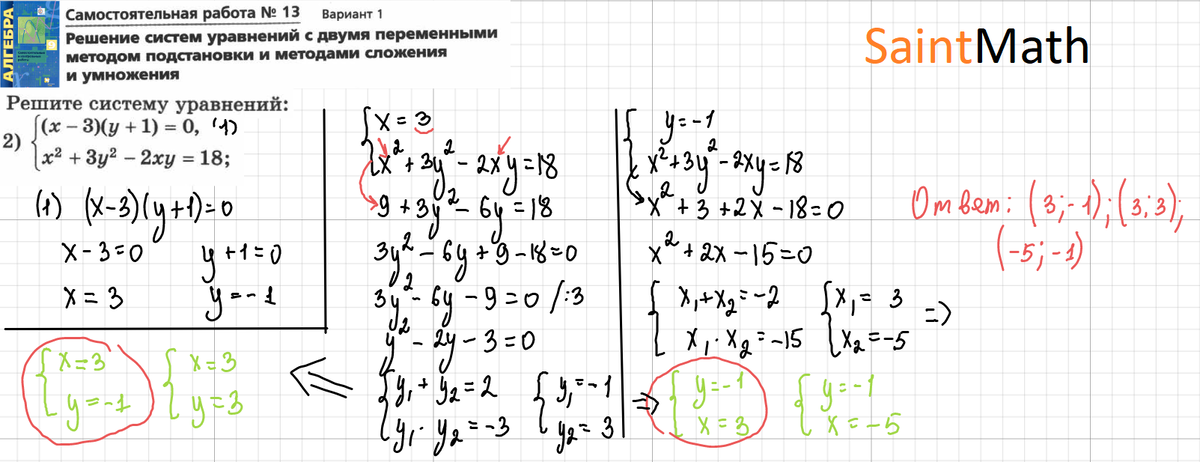 АЛГЕБРА
Самостоятельная работа № 13 Вариант 1
Решение систем уравнений с двумя переменными
методом подстановки и методами сложения
и умножения
SaintMath
Решите систему уравнений:
2) {(x – 3)(y + 1) = 0, (1)
x² + 3y² – 2xy = 18;
(1) (x-3)(y+1)=0
x-3=0 y+1=0
x=3 y=-1
{x=3
y=-1
{x=3
y=3
{x=3
x²+3y²-2xy=18
9+3y²-6y=18
3y²-6y+9-18=0
3y²-6y-9=0 /:3
y²-2y-3=0
{y₁+y₂=2
y₁·y₂=-3
{y₁=-1
y₂=3
{y=-1
x²+3y²-2xy=18
x²+3+2x-18=0
x²+2x-15=0
{x₁+x₂=-2
x₁·x₂=-15
{x₁=3
x₂=-5
=>
=> {y=-1
x=3
{y=-1
x=-5
Ответ: (3;-1);(3;3);
(-5;-1)